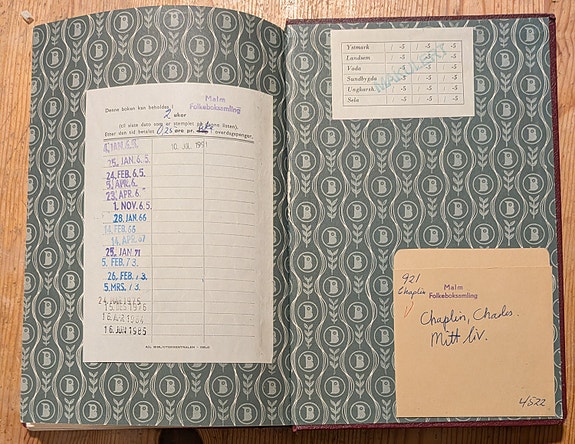 Denne boken kan beholdes i
Malm
Folkeboksamling
2 uker
(til siste dato som er stemplet på denne listen).
Etter den tid betales 0,25 øre pr. overdagspenger.
JAN. 6.5.
10. JUL. 1991
25. JAN. 6.5.
24. FEB. 6.5.
5. APR. 6.
23. APR. 6.
1. NOV. 6.5.
28. JAN. 66
14. FEB. 66
14. APR. 67
25. JAN. 71
5. FEB. 73.
26. FEB. 73.
5. MRS. 73.
16. JUN 1985
A/L BIBLIOTEKSENTRALEN - OSLO
Ystmark / -5 / -5 / -5
Landsem / -5 / -5 / -5
Voda / -5 / -5 / -5
Sundbygda / -5 / -5 / -5
Ungkarsh. / -5 / -5 / -5
Sela / -5 / -5 / -5
921
Chaplin
Malm
Folkeboksamling
Chaplin, Charles.
Mitt liv.
4522